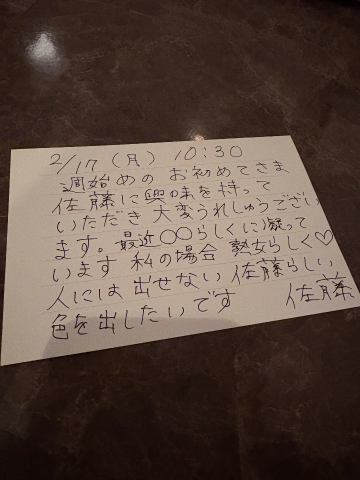 2/17(月) 10:30
週始めの お初めてさま
佐藤に興味を持って
いただき 大変うれしゅうござい
ます。最近〇〇らしくに凝って
います 私の場合 熟女らしく♡
人には出せない 佐藤らしい
色を出したいです 佐藤